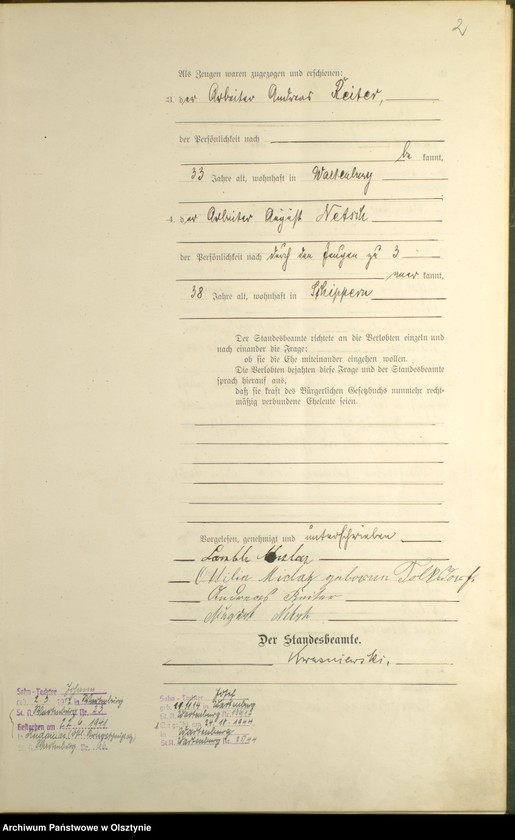 2
Als Zeugen waren zugezogen und erschienen:
3. der Arbeiter Andreas Reiter,
der Persönlichkeit nach
be kannt,
33 Jahre alt, wohnhaft in Wartenburg
4. der Arbeiter August Netsch
der Persönlichkeit nach durch den Zeugen zu 3
aner kannt,
38 Jahre alt, wohnhaft in Schippern
Der Standesbeamte richtete an die Verlobten einzeln und
nach einander die Frage:
ob sie die Ehe miteinander eingehen wollen.
Die Verlobten bejahten diese Frage und der Standesbeamte
sprach hierauf aus,
daß sie kraft des Bürgerlichen Gesetzbuchs nunmehr recht-
mäßig verbundene Eheleute seien.
Vorgelesen, genehmigt und unterschrieben
Ottilie geborene Tolksdorf
Andreas Reiter
August Netsch
Der Standesbeamte.
Krasniewski.
Sohn - Tochter Johann
in Wartenburg
St. A. Wartenburg Nr.
Gestorben am 22. 4. 1941
Wartenburg Nr.
Sohn - Tochter Josef
in Wartenburg
Wartenburg Nr.
Wartenburg
St.A. Wartenburg Nr.
Archiwum Państwowe w Olsztynie